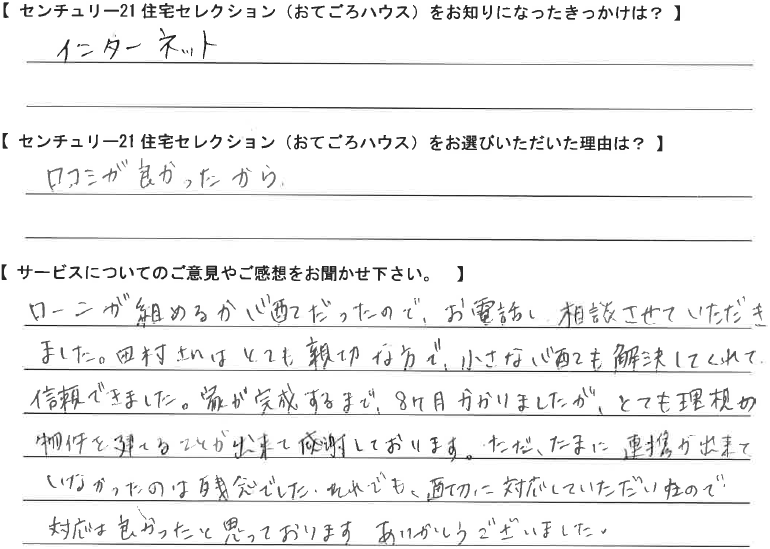 【 センチュリー21 住宅セレクション（おてごろハウス）をお知りになったきっかけは？ 】
インターネット
【 センチュリー21 住宅セレクション（おてごろハウス）をお選びいただいた理由は？ 】
口コミが良かったから。
【 サービスについてのご意見やご感想をお聞かせ下さい。 】
ローンが組めるか心配だったので、お電話し 相談させていただき
ました。田村さんはとても親切な方で、小さな心配も解決してくれて
信頼できました。家が完成するまで、8ケ月かかりましたが、とても理想の
物件を建てることが出来て感謝しております。ただ、たまに連携が出来て
いなかったのは残念でした。それでも、適切に対応していただいたので
対応は良かったと思っております ありがとうございました。